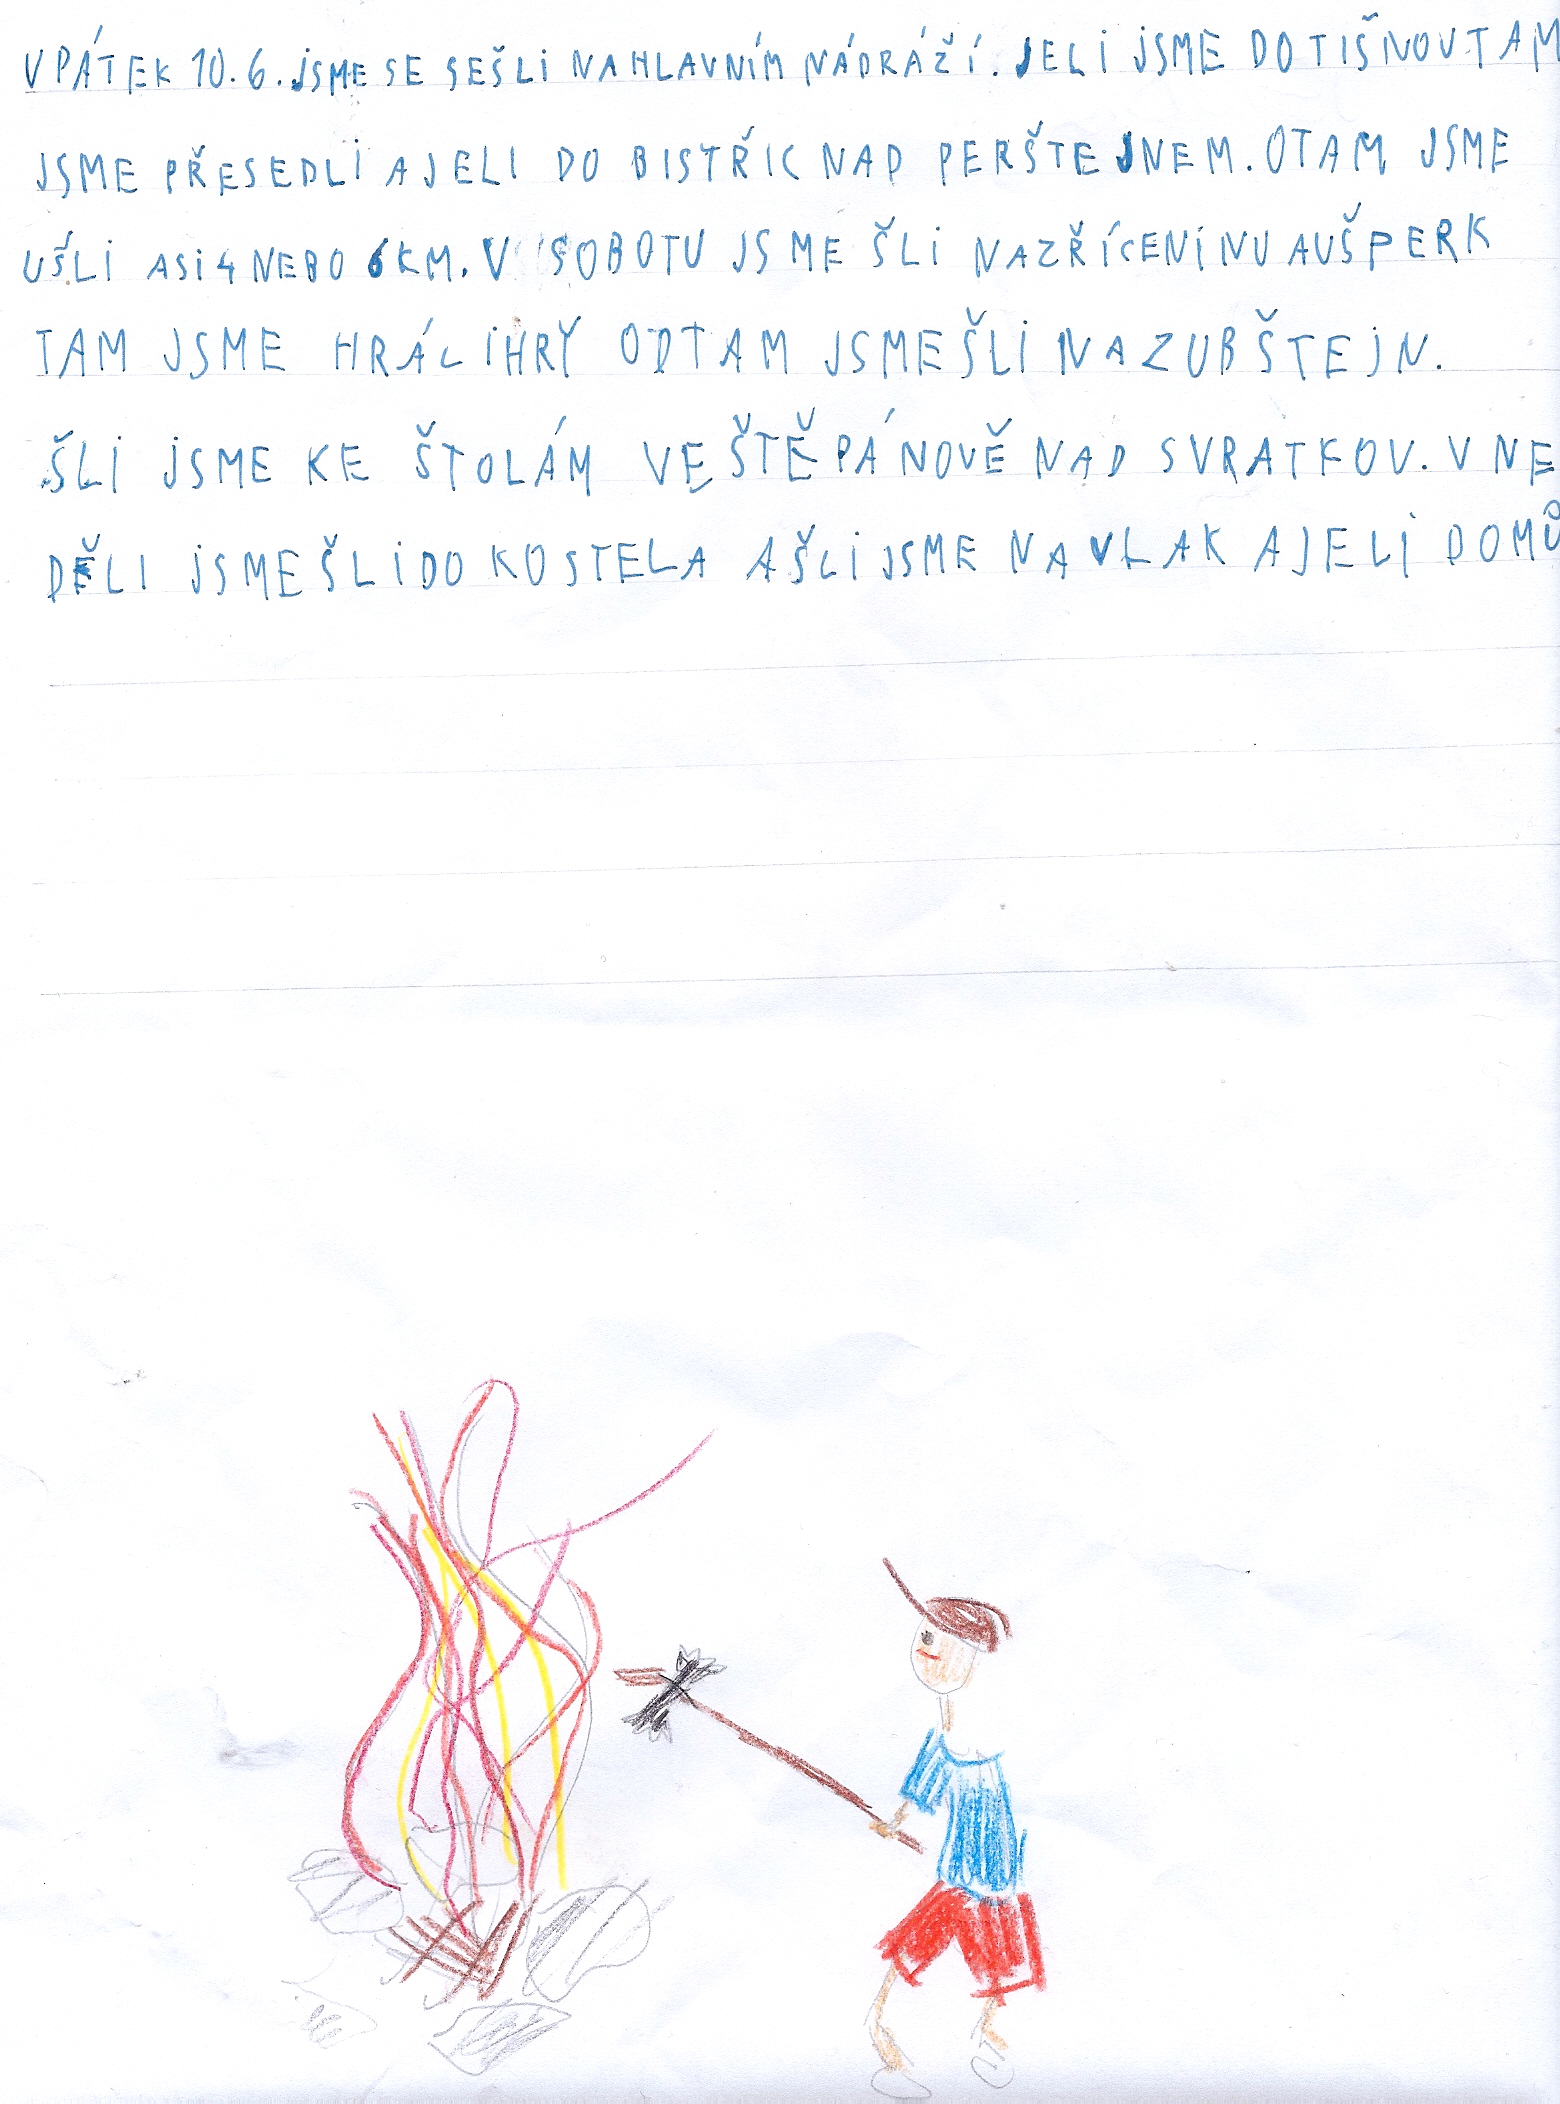 V PÁTEK 10.6. JSME SE SEŠLI NA HLAVNÍM NÁDRÁŽÍ. JELI JSME DO TIŠNOV TAM
JSME PŘESEDLI A JELI DO BISTŘIC NAD PERŠTEJNEM. OTAM JSME
UŠLI ASI 4 NEBO 6 KM. V SOBOTU JSME ŠLI NA ZŘÍCENÍNU AUŠPERK
TAM JSME HRÁLI HRY ODTAM JSME ŠLI NA ZUBŠTEJN.
ŠLI JSME KE ŠTOLÁM VE ŠTĚPÁNOVĚ NAD SVRATKOV. V NE
DĚLI JSME ŠLI DO KOSTELA A ŠLI JSME NA VLAK A JELI DOMŮ